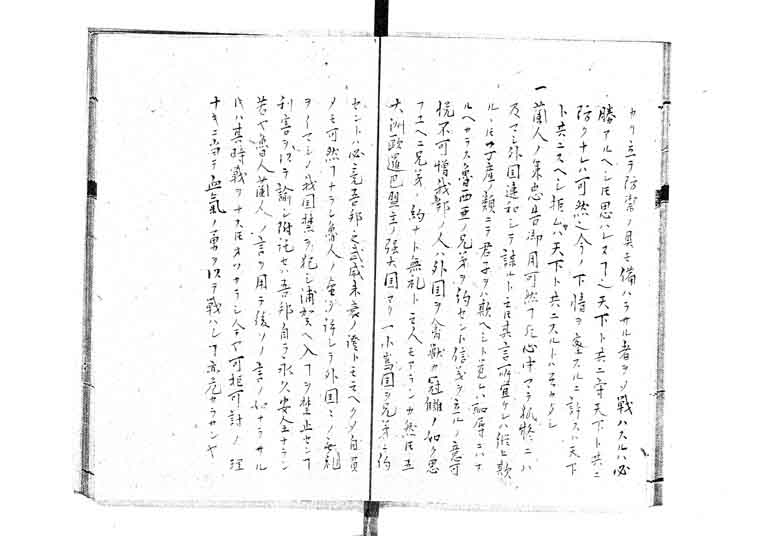 カリ立テ防禦ノ具モ備ハラサル者ヲシ戦ハスルハ必
勝アルヘシトモ思ハレス丁之天下ト共ニ守天下ト共ニ
防クナレハ可然之今ノ下情ヲ察スルニ許スハ天下
ト共ニスヘシ拒ムハ天下ト共ニスルトハモウカタシ
一蘭人ノ忠告御用可然乍心中マテ狐疑ニハ
及マシ外国違和シテ諫ルト モ其言所宜ケレハ縦ヒ欺
ルヽトモ子産ノ類ニテ君子ヲ欺ヘシト覚ヘハ恥辱ニハナ
ルヘカラス魯西亜ノ兄弟ヲ約セント信義ヲ立ルノ意可
悦不可憎我邦ノ人ハ外国ヲ禽獣カ冠ノ如ク思
フユヘニ兄弟ノ約ナト無礼ト云人モアランカ然トモ五
大洲欧邏巴盟主ノ強大国ヨリ一小嶌国ヲ兄弟ニ約
セントハ必竟吾邦之武威未衰ノ證トモモヘクメ自負
メモ可然ナラン魯人ノ金ヲ許シテ外国ニノ
ヲイマシノ我国禁ヲ犯シ浦賀ヘ入ヲ禁止セン丁
利害ヲ以テ諭シ附託セハ吾邦自ラ永久安全ナラン
若ヤ魯人蘭人ノ言ヲ用テ後ソノ言ノ如ナラサル
トハ其時戦ヲナストモヲソナラシ人テヤ可拒可討ノ理
ナキニ当テ血氣ノ勇ヲ以テ戦ハレ丁亦危カラサンヤ